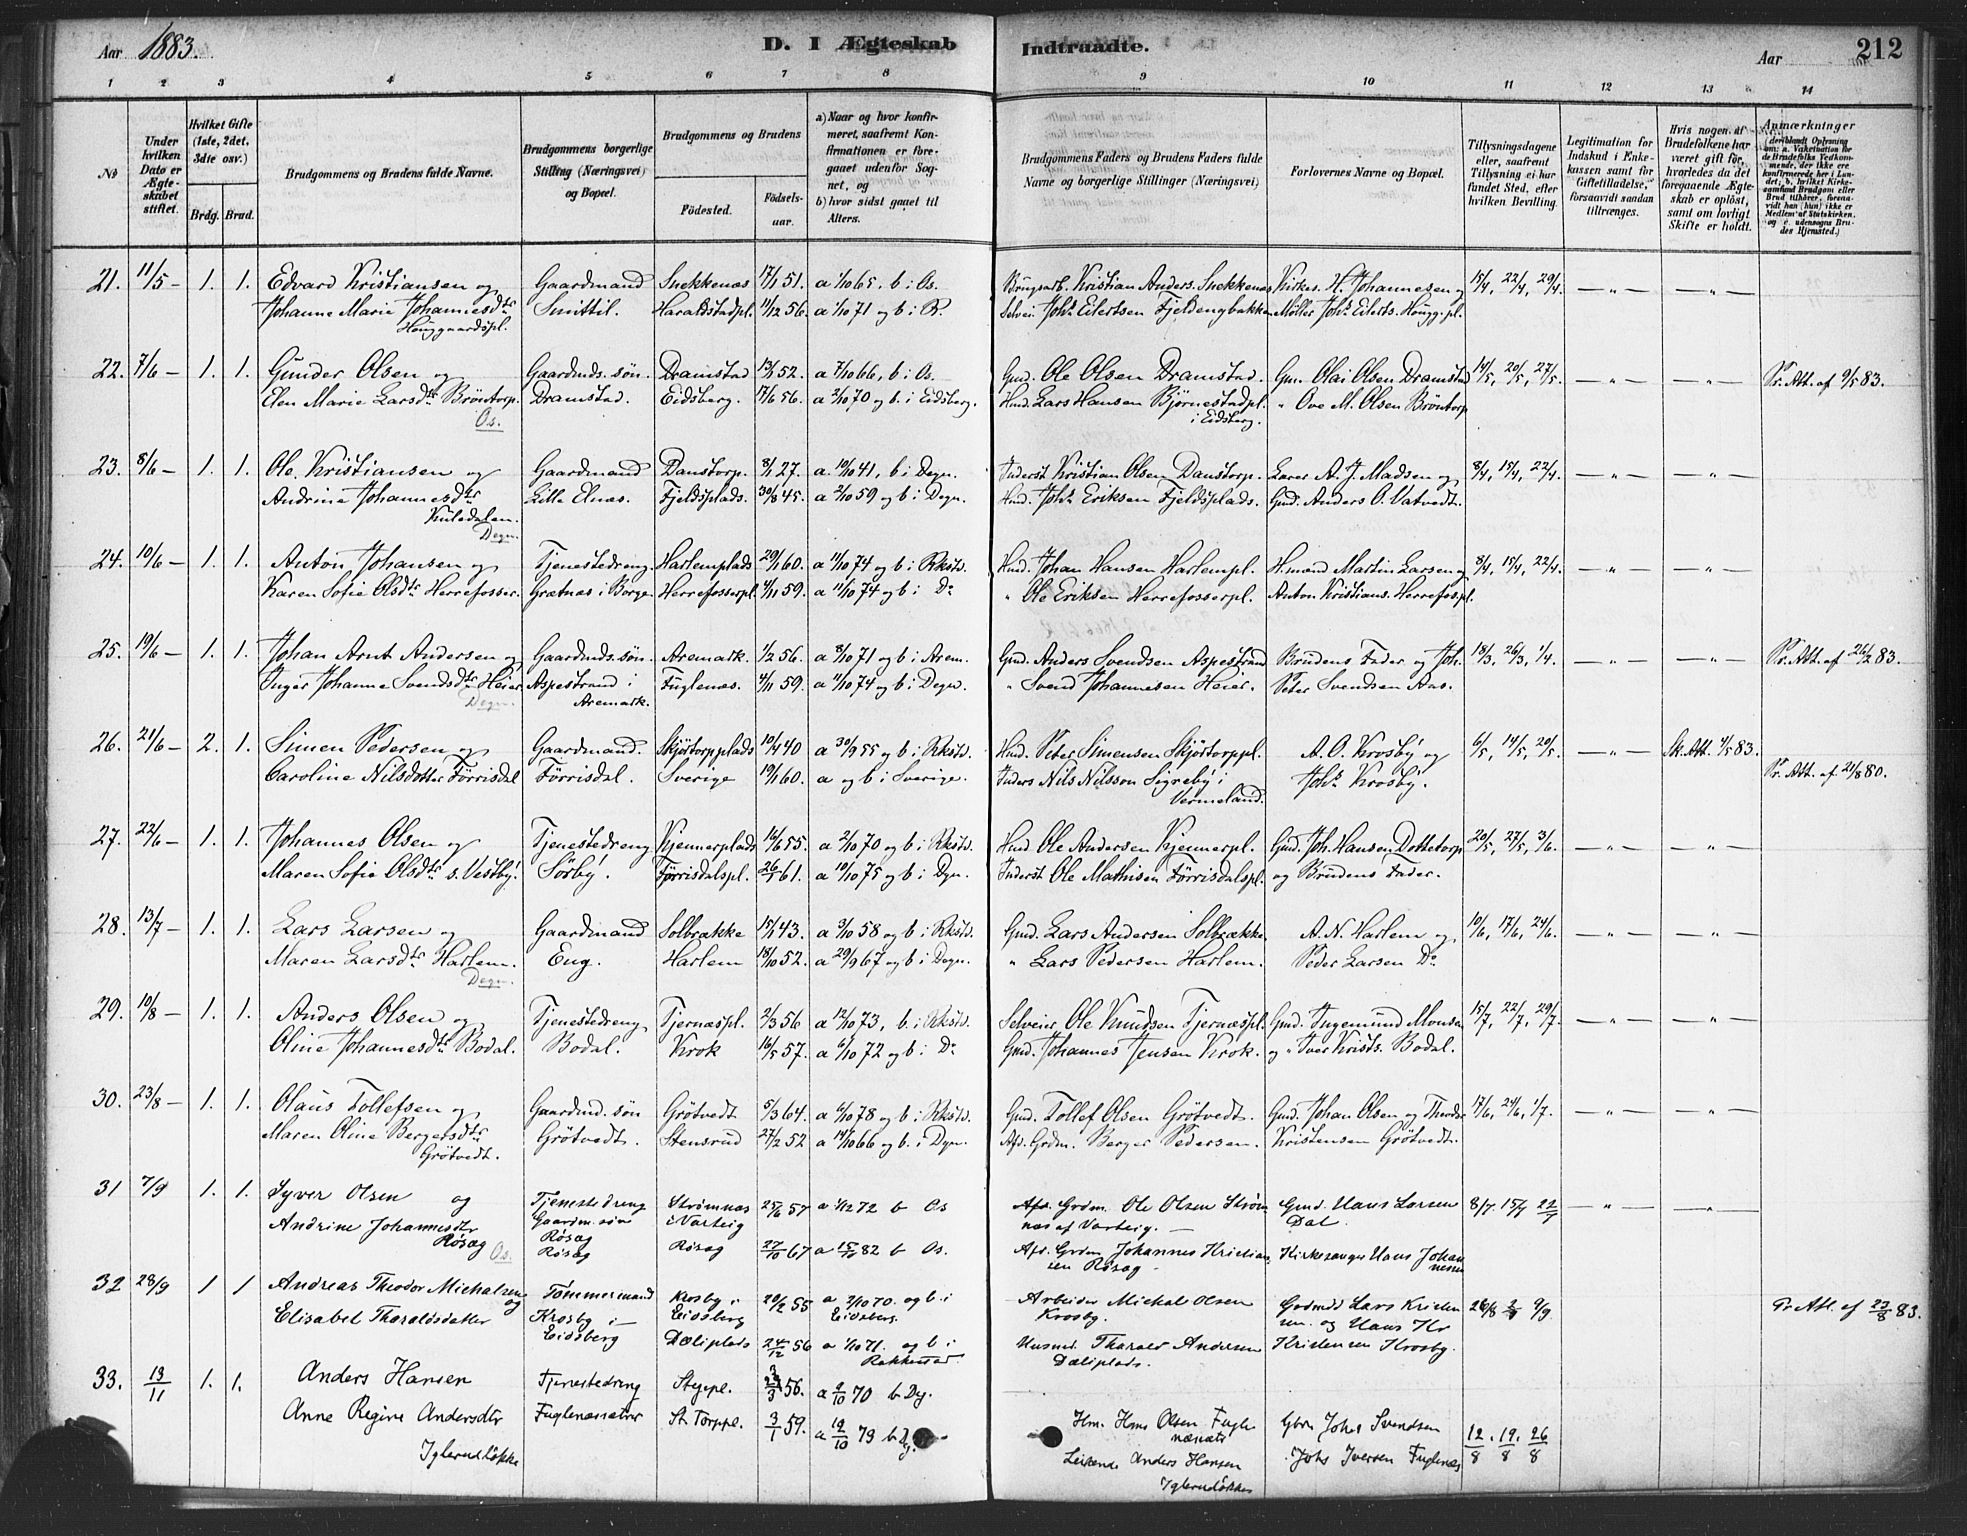 Aar 1883. D. I Ægteskab Indtraadte. Aar 212
1 2 3 4 5 6 7 8 9 10 11 12 13 14
No
Under hvilken Dato er Ægteskabet stiftet.
Hvilket Gifte (1ste, 2det, 3dte osv.)
Brdg. Brud.
Brudgommens og Brudens fulde Navne.
Brudgommens borgerlige Stilling (Næringsvei) og Bopæl.
Brudgommens og Brudens
Fødested. Fødselsaar.
a) Naar og hvor konfirmeret, saafremt Konfirmationen er foregaaet udenfor Sognet, og
b) hvor sidst gaaet til Alters.
Brudgommens Faders og Brudens Faders fulde Navne og borgerlige Stillinger (Næringsvei)
Forlovernes Navne og Bopæl.
Tillysningsdagene eller, saafremt Tillysning ei har fundet Sted, efter hvilken Bevilling.
Legitimation for Indskud i Enkekassen samt for Giftetilladelse, forsaavidt saadan tiltrænges.
Hvis nogen af Brudefolkene har været gift før, hvorledes da det foregaaende Ægteskab er opløst, samt om lovligt Skifte er holdt.
Anmærkninger
21. 11/5 – 1. 1. Edvard Kristiansen og Gaardmand Snekkenæs 17/1 51. a 1/10 65. b i Os. Kristian Anders. Snekkenæs Kirkes. H. Johannesen og 15/4, 22/4, 29/4. — „ — — „ —
Johanne Marie Johannesdtr Smittil. Haraldstadpl. 11/12 56. a 1/10 71 og b i R. Selvei. Johs Eilertsen Fjeldengbakken Møller Johs Eilerts. Hougg.pl.
Houggaardspl.
22. 7/6 – 1. 1. Gunder Olsen og Gaardmds. søn. Dramstad 13/2 52. a 7/10 66, b i Os. Gmd. Ole Olsen Dramstad. Gm. Olai Olsen Dramstad 14/5, 20/5, 27/5. — „ — — „ — Pr. Att. af 9/5 83.
Elen Marie Larsdtr Brøntorp. Dramstad. Eidsberg. 17/6 56. a 2/10 70 og b. i Eidsberg. Hmd. Lars Hansen Bjørnestadpl. „ Ove M. Olsen Brøntorp
Os. i Eidsberg.
23. 8/6 – 1. 1. Ole Kristiansen og Gaardmand Danstorp. 8/1 27. a 10/10 41, b i Degn. Inderst Kristian Olsen Danstorp. Lærer A. J. Madsen og 8/4, 15/4, 22/4. — „ — — „ —
Andrine Johannesdtr Lille Elnæs. Fjeldsplads. 30/8 45. a 2/10 59 og b i Degn. Hmd. Johs Eriksen Fjeldsplads. Gmd. Anders O. Vatvedt.
Kuledalen.
Degn.
24. 10/6 – 1. 1. Anton Johansen og Tjenestedreng. Harlemplads 29/1 60. a 11/10 74 og b i Rkstd. Hmd. Johan Hansen Harlempl. H.mand Martin Larsen og 8/4, 15/4, 22/4. — „ — — „ —
Karen Sofie Olsdtr Herrefosser. Grætnæs i Borge Herrefosserpl. 4/11 59. a 11/10 74 og b i Do „ Ole Eriksen Herrefosserpl. Anton Kristians. Herrefos.pl.
25. 19/6 – 1. 1. Johan Arnt Andersen og Gaardmds. søn Aremark. 1/2 56. a 8/10 71 og b i Arem. Gmd. Anders Svendsen Aspestrand Brudens Fader og Joh. 18/3, 26/3, 1/4. — „ — — „ — Pr. Att. af 26/2 83.
Inger Johanne Svendsdtr Heier Aspestrand i Fuglenæs. 4/11 59. a 11/10 74 og b i Degn. „ Svend Johannesen Heier. Peter Svendsen Aas.
Degn. Aremark.
26. 21/6 – 2. 1. Simen Pedersen og Gaardmand. Skjørtorpplads 10/4 40 a 30/9 55 og b i Rkstd. Hmd. Peter Simensen Skjørtorppl. A. O. Krosby og 6/5, 14/5, 20/5. — „ — Sk. Att. 4/5 83.
Caroline Nilsdotter Førrisdal Førrisdal. Sverige 19/1 60. a og b i Sverige. Inders Nils Nilsson Sigreby i Johs Krosby. Pr. Att. af 21/8 80.
Vermeland.
27. 22/6 – 1. 1. Johannes Olsen og Tjenestedreng Kjennerplads 16/6 55 a 2/10 70 og b i Rkstd. Hmd Ole Andersen Kjennerpl. Gmd. Joh. Hansen Dettetorp 20/5, 27/5, 3/6. — „ — — „ —
Maren Sofie Olsdtr s. Vestby. Sørby. Førrisdalspl. 26/1 61. a 10/10 75 og b i Dgn. Inderst Ole Mathisen Førrisdalspl. og Brudens Fader.
28. 13/7 – 1. 1. Lars Larsen og Gaardmand Solbrække 15/1 43. a 3/10 58 og b i Rkstd. Gmd. Lars Andersen Solbrække. A. N. Harlem og 10/6, 17/6, 24/6. — „ — — „ —
Maren Larsdtr Harlem. Eng. Harlem 18/10 52. a 29/9 67 og b i Degn. „ Lars Pedersen Harlem. Peder Larsen Do
Degn.
29. 10/8 – 1. 1. Anders Olsen og Tjenestedreng Tjernæspl. 2/3 56 a 12/10 73, b. i Rkstd. Selveier Ole Knudsen Tjernæspl. Gmd. Ingemund Monsen 15/7, 22/7, 29/7. — „ — — „ —
Oline Johannesdtr Bodal. Bodal. Krok 16/5 57. a 6/10 72 og b i Do Gmd. Johannes Jensen Krok. og „ Iver Krists. Bodal.
30. 23/8 – 1. 1. Olaus Tollefsen og Gaardmd. søn Grøtvedt 5/3 64. a 6/10 78 og b i Rkstd. Gmd. Tollef Olsen Grøtvedt. Gmd. Johan Olsen og Theodor 17/6, 24/6, 1/7. — „ — — „ —
Maren Oline Bergersdtr Grøtvedt. Stensrud 27/2 52 a 14/10 66 og b. i Dgn. Afd. Grdm. Berger Pedersen. Kristensen Grøtvedt.
Grøtvedt.
31 7/9 1. 1. Syver Olsen og Tjenestedreng Strømnæs 25/6 57 a 1/12 72 b Os Afd. Grdm. Ole Olsen Strøm Gmd Hans Larsen 8/7. 15/7 22/7 — „ — — „ —
Andrine Johannesdtr Gaardm. søn i Varteig næs af Varteig. Dal
Røsæg Os. Røsæg
Røsæg Røsæg 27/10 67 a 15/10 82 b Os. Afd. Grdm Johannes Kristian Kirkesanger Hans Johan
sen Røsæg nesen
32 28/9 1 1 Andreas Theodor Michalsen og Tømmermand Krosby i 20/2 55 a 2/10 70. og b i Arbeider Mickal Olsen Grdmd Lars Kristen 26/8 2/9 9/9 Pr. Att. af 23/8 83.
Elisabet Tharaldsdatter Krosby i Eidsberg Eidsberg. Krosby. sen og Hans Kr
Eidsberg Dæliplads 24/12 56 a 1/10 71. og b i Husmd Tharald Andersen Kristensen Krosby.
Rakkestad. Dæliplads.
33. 13/11 1. 1. Anders Hansen Tjenestedreng 56. a 2/10 70 b Dg.
Anne Regine Andersdtr Fuglenæssæter St. Torppl. 3/1 59. a 12/10 73 b Dg. Hm. Hans Olsen Fugle Gbr. Johs Svendsen 12/8. 19/8. 26/8
næsæter
Iglerudløkke Anders Hansen Johs Iversen Fuglenæs
Iglerudløkke